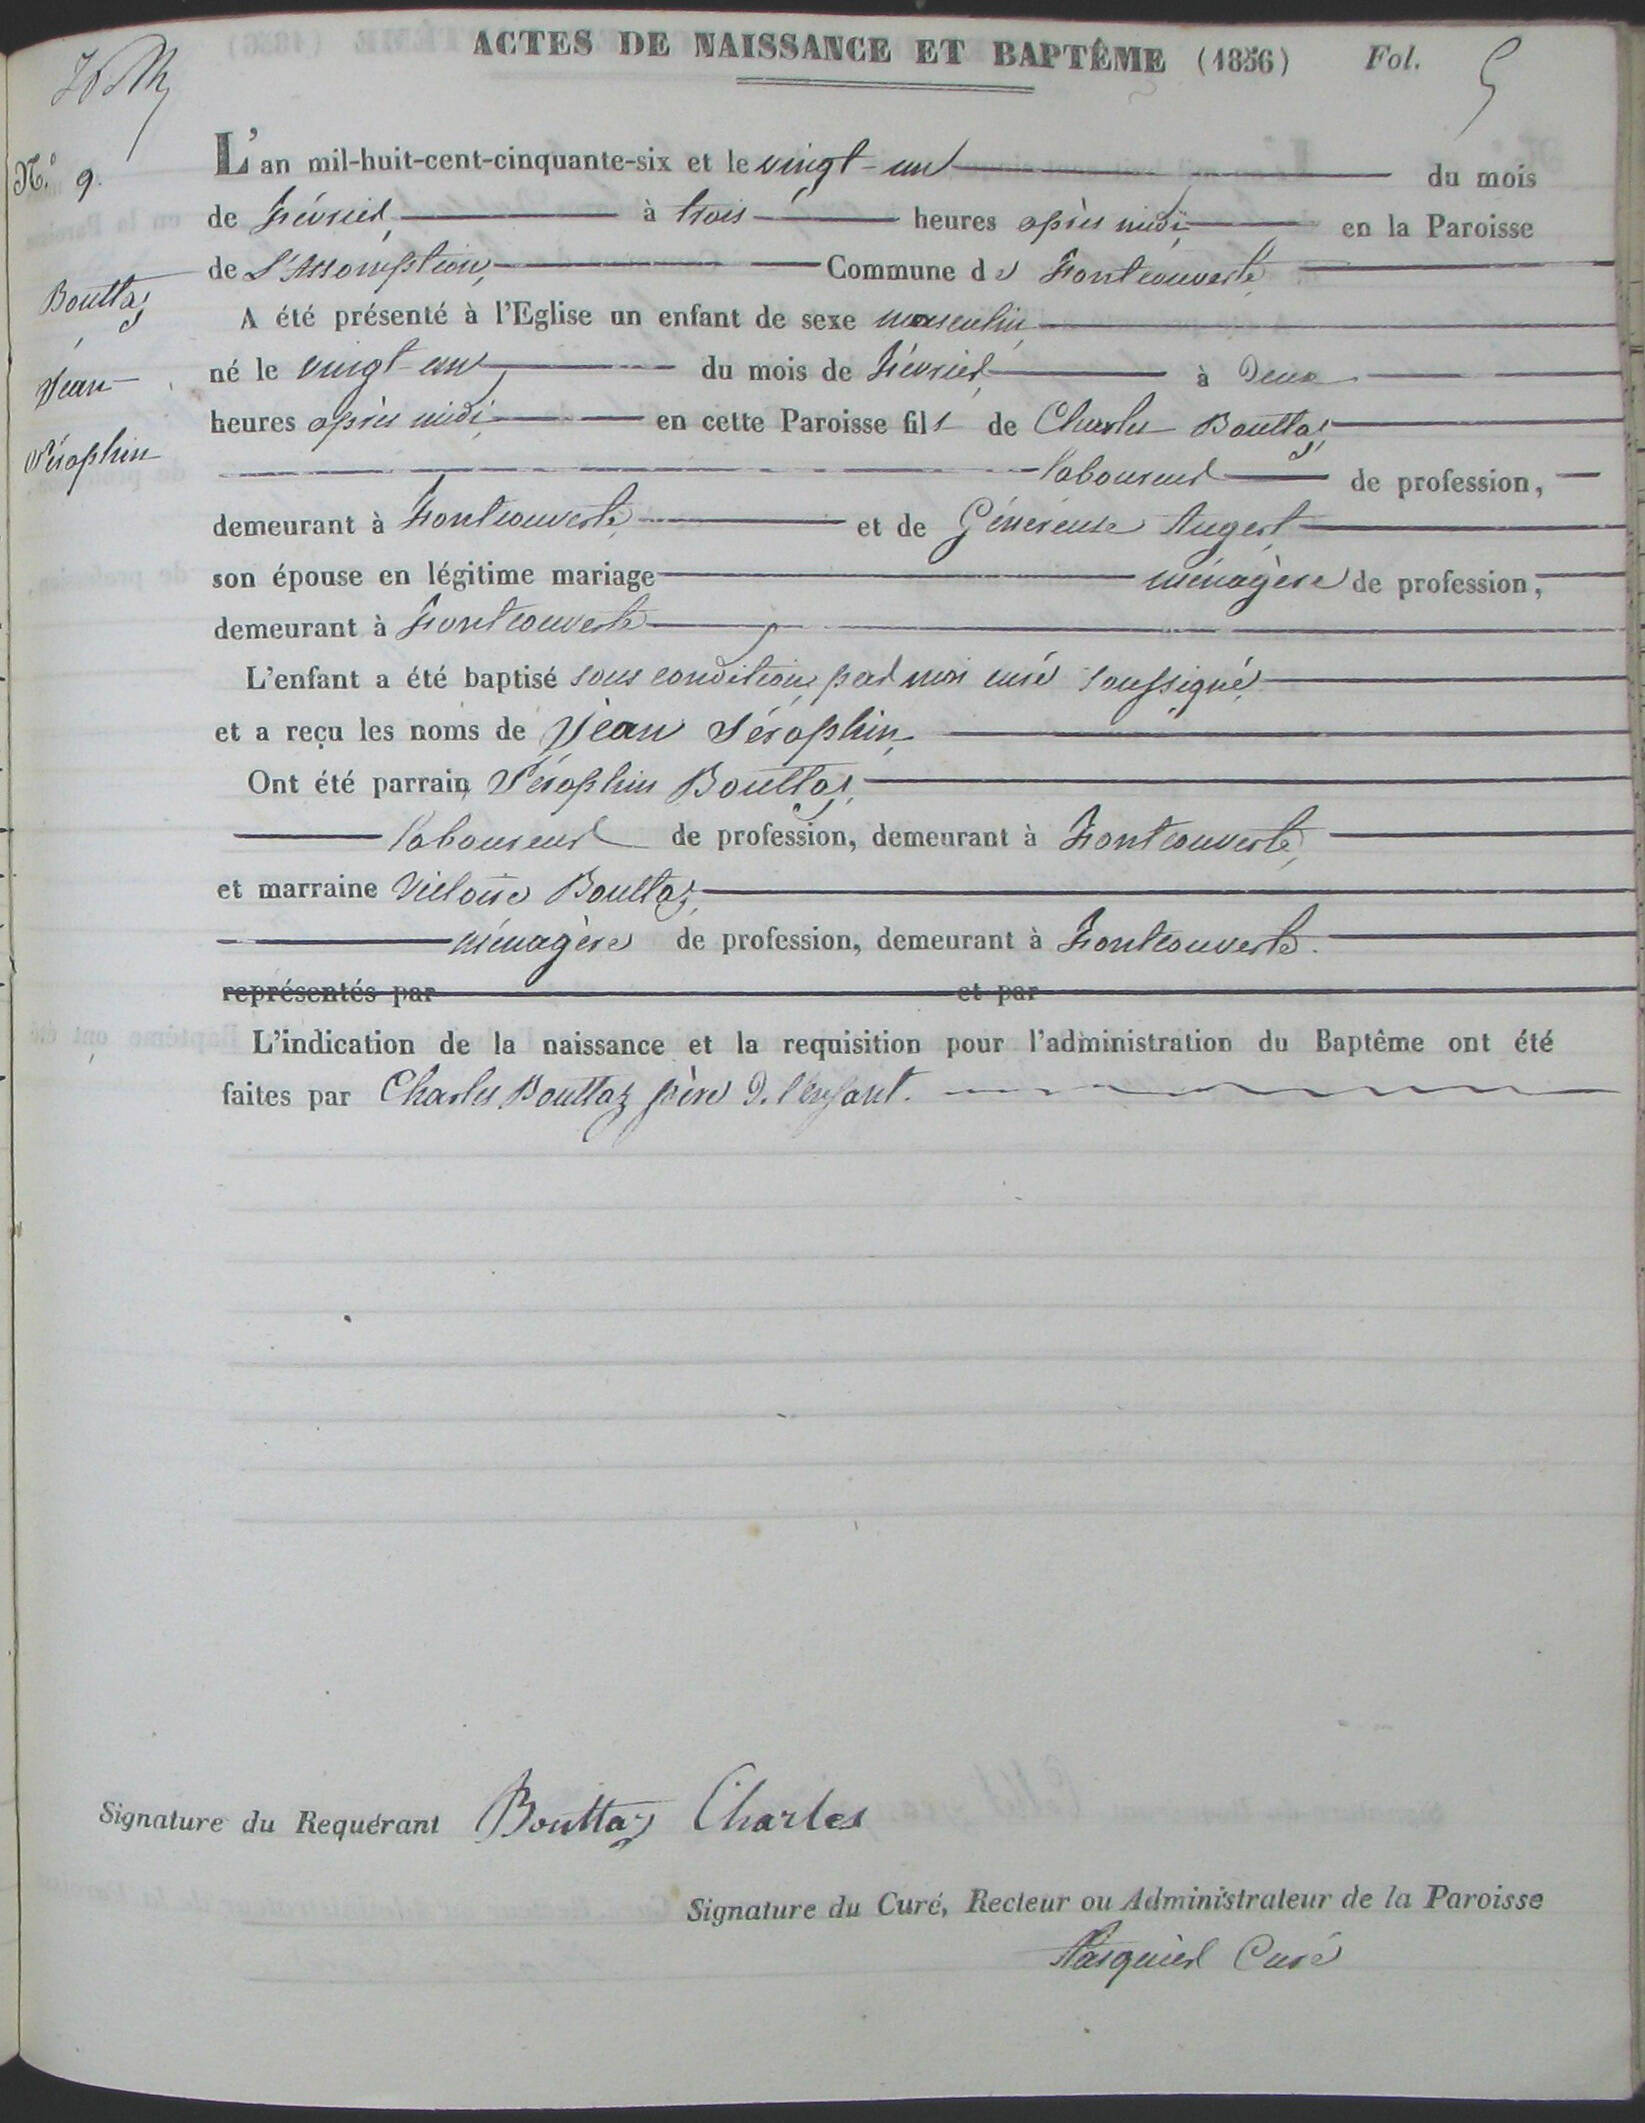 ACTES DE NAISSANCE ET BAPTÊME (1856) Fol. 5
N.º 9.
Bouttaz
Jean
Séraphin
L'an mil-huit-cent-cinquante-six et le vingt-un du mois
de Février à trois heures après midi en la Paroisse
de L'Assomption, Commune de Fontcouverte
A été présenté à l'Eglise un enfant de sexe masculin
né le vingt-un du mois de Février à deux
heures après midi en cette Paroisse fils de Charles Bouttaz
laboureur de profession,
demeurant à Fontcouverte et de Généreuse Augert
son épouse en légitime mariage ménagère de profession,
demeurant à Fontcouverte
L'enfant a été baptisé sous condition par moi curé soussigné
et a reçu les noms de Jean Séraphin
Ont été parrain Séraphin Bouttaz
laboureur de profession, demeurant à Fontcouverte,
et marraine Victoire Bouttaz
ménagère de profession, demeurant à Fontcouverte.
représentés par et par
L'indication de la naissance et la requisition pour l'administration du Baptême ont été
faites par Charles Bouttaz père de l'enfant.
Signature du Requérant Bouttaz Charles
Signature du Curé, Recteur ou Administrateur de la Paroisse
Pasquier Curé